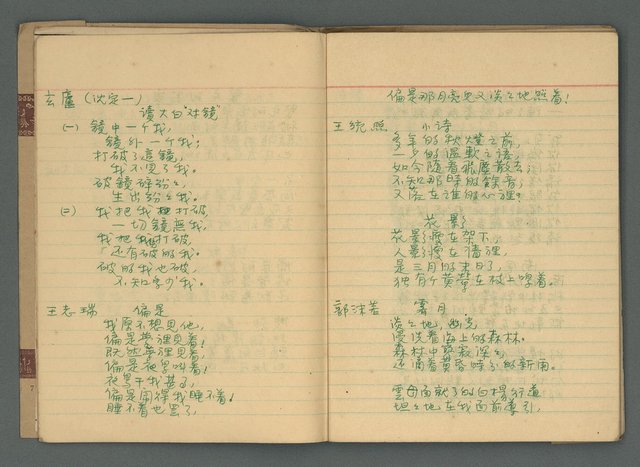 玄廬（沈定一）
讀大白"对鏡"
(一) 鏡中一个我，
鏡外一个我；
打破了這鏡，
我不見了我。
破鏡碎紛紛，
生出紛紛我。
(二) 我把我打破，
一切鏡無我，
我把我打破，
还有破的我。
破的我也破，
不知多少我。
王志瑞 偏是
我原不想見他，
偏是夢裡見着！
既然夢裡見着！
偏是夜里叫着！
偏是闹得我睡不着！
睡不着也罢了，
偏是那月亮兒又淡淡地照着！
王統照 小诗
多年的秋燈之前，
一夕的溫軟之語，
如今随着飛塵散去，
不知那時的餘音，
又落在誰的心裡。
花影
花影瘦在架下，
人影瘦在墙裡，
是三月的末日了，
独有个黄鶯在枝上啼着。
郭沫若 霽月
淡淡地，幽光
浸洗着海上的森林。
森林中寥寂深深，
还滴着黄昏時分的新雨。
雲母面就了的白楊行道
坦坦地在我面前導引，